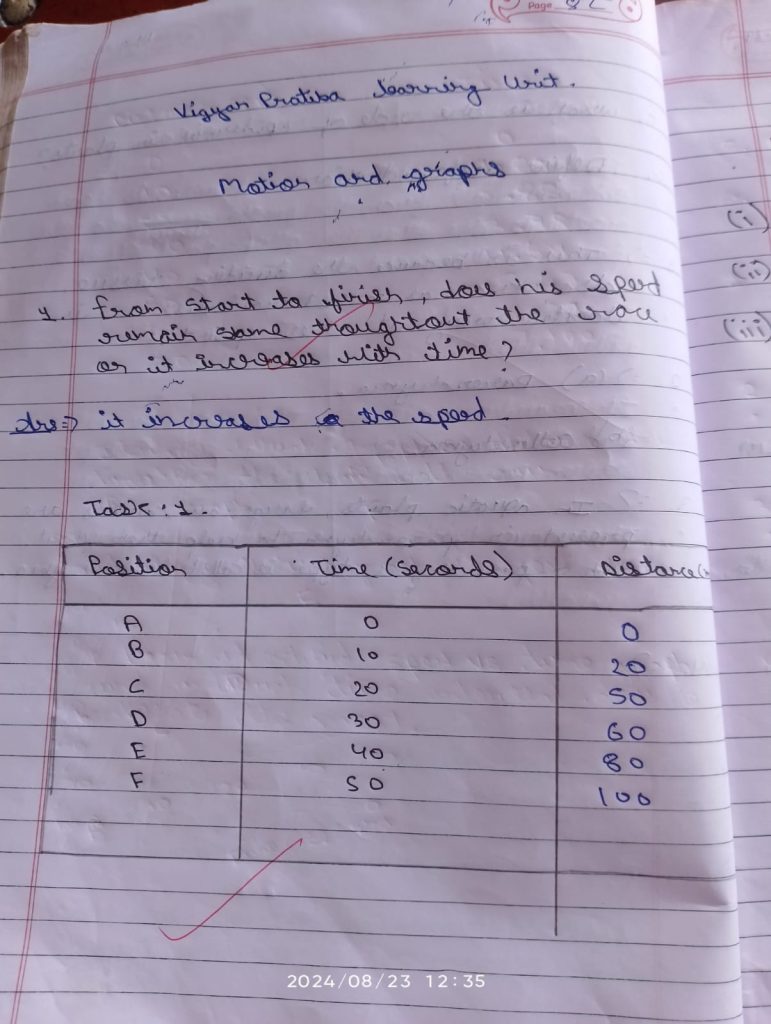 Page
Vigyan Pratiba Learning Unit.
Motion and graphs
(i)
(ii)
(iii)
1. From start to finish, does his speed
remain same thoughtout the race
or it increases with time?
Ans⇒ it increases the speed.
Task:1.
Position Time (Seconds) Distance(
A 0 0
B 10 20
C 20 50
D 30 60
E 40 80
F 50 100
2024/08/23 12:35